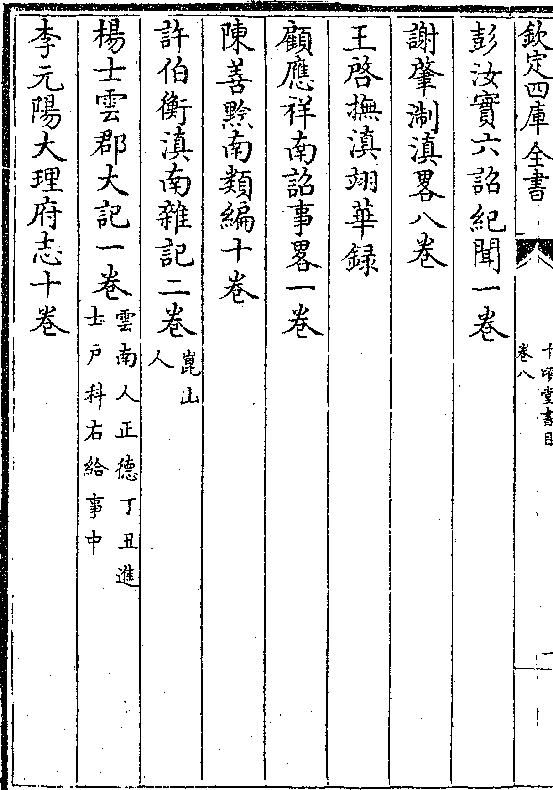 欽定四庫全書
千頃堂書目
卷八
彭汝實六詔紀聞一卷
謝肇淛滇畧八卷
王啓撫滇翊華録
顧應祥南詔事畧一卷
陳善黔南類編十卷
許伯衡滇南雜記二卷崑山人
楊士雲郡大記一卷雲南人正德丁丑進士戶科右給事中
李元陽大理府志十卷